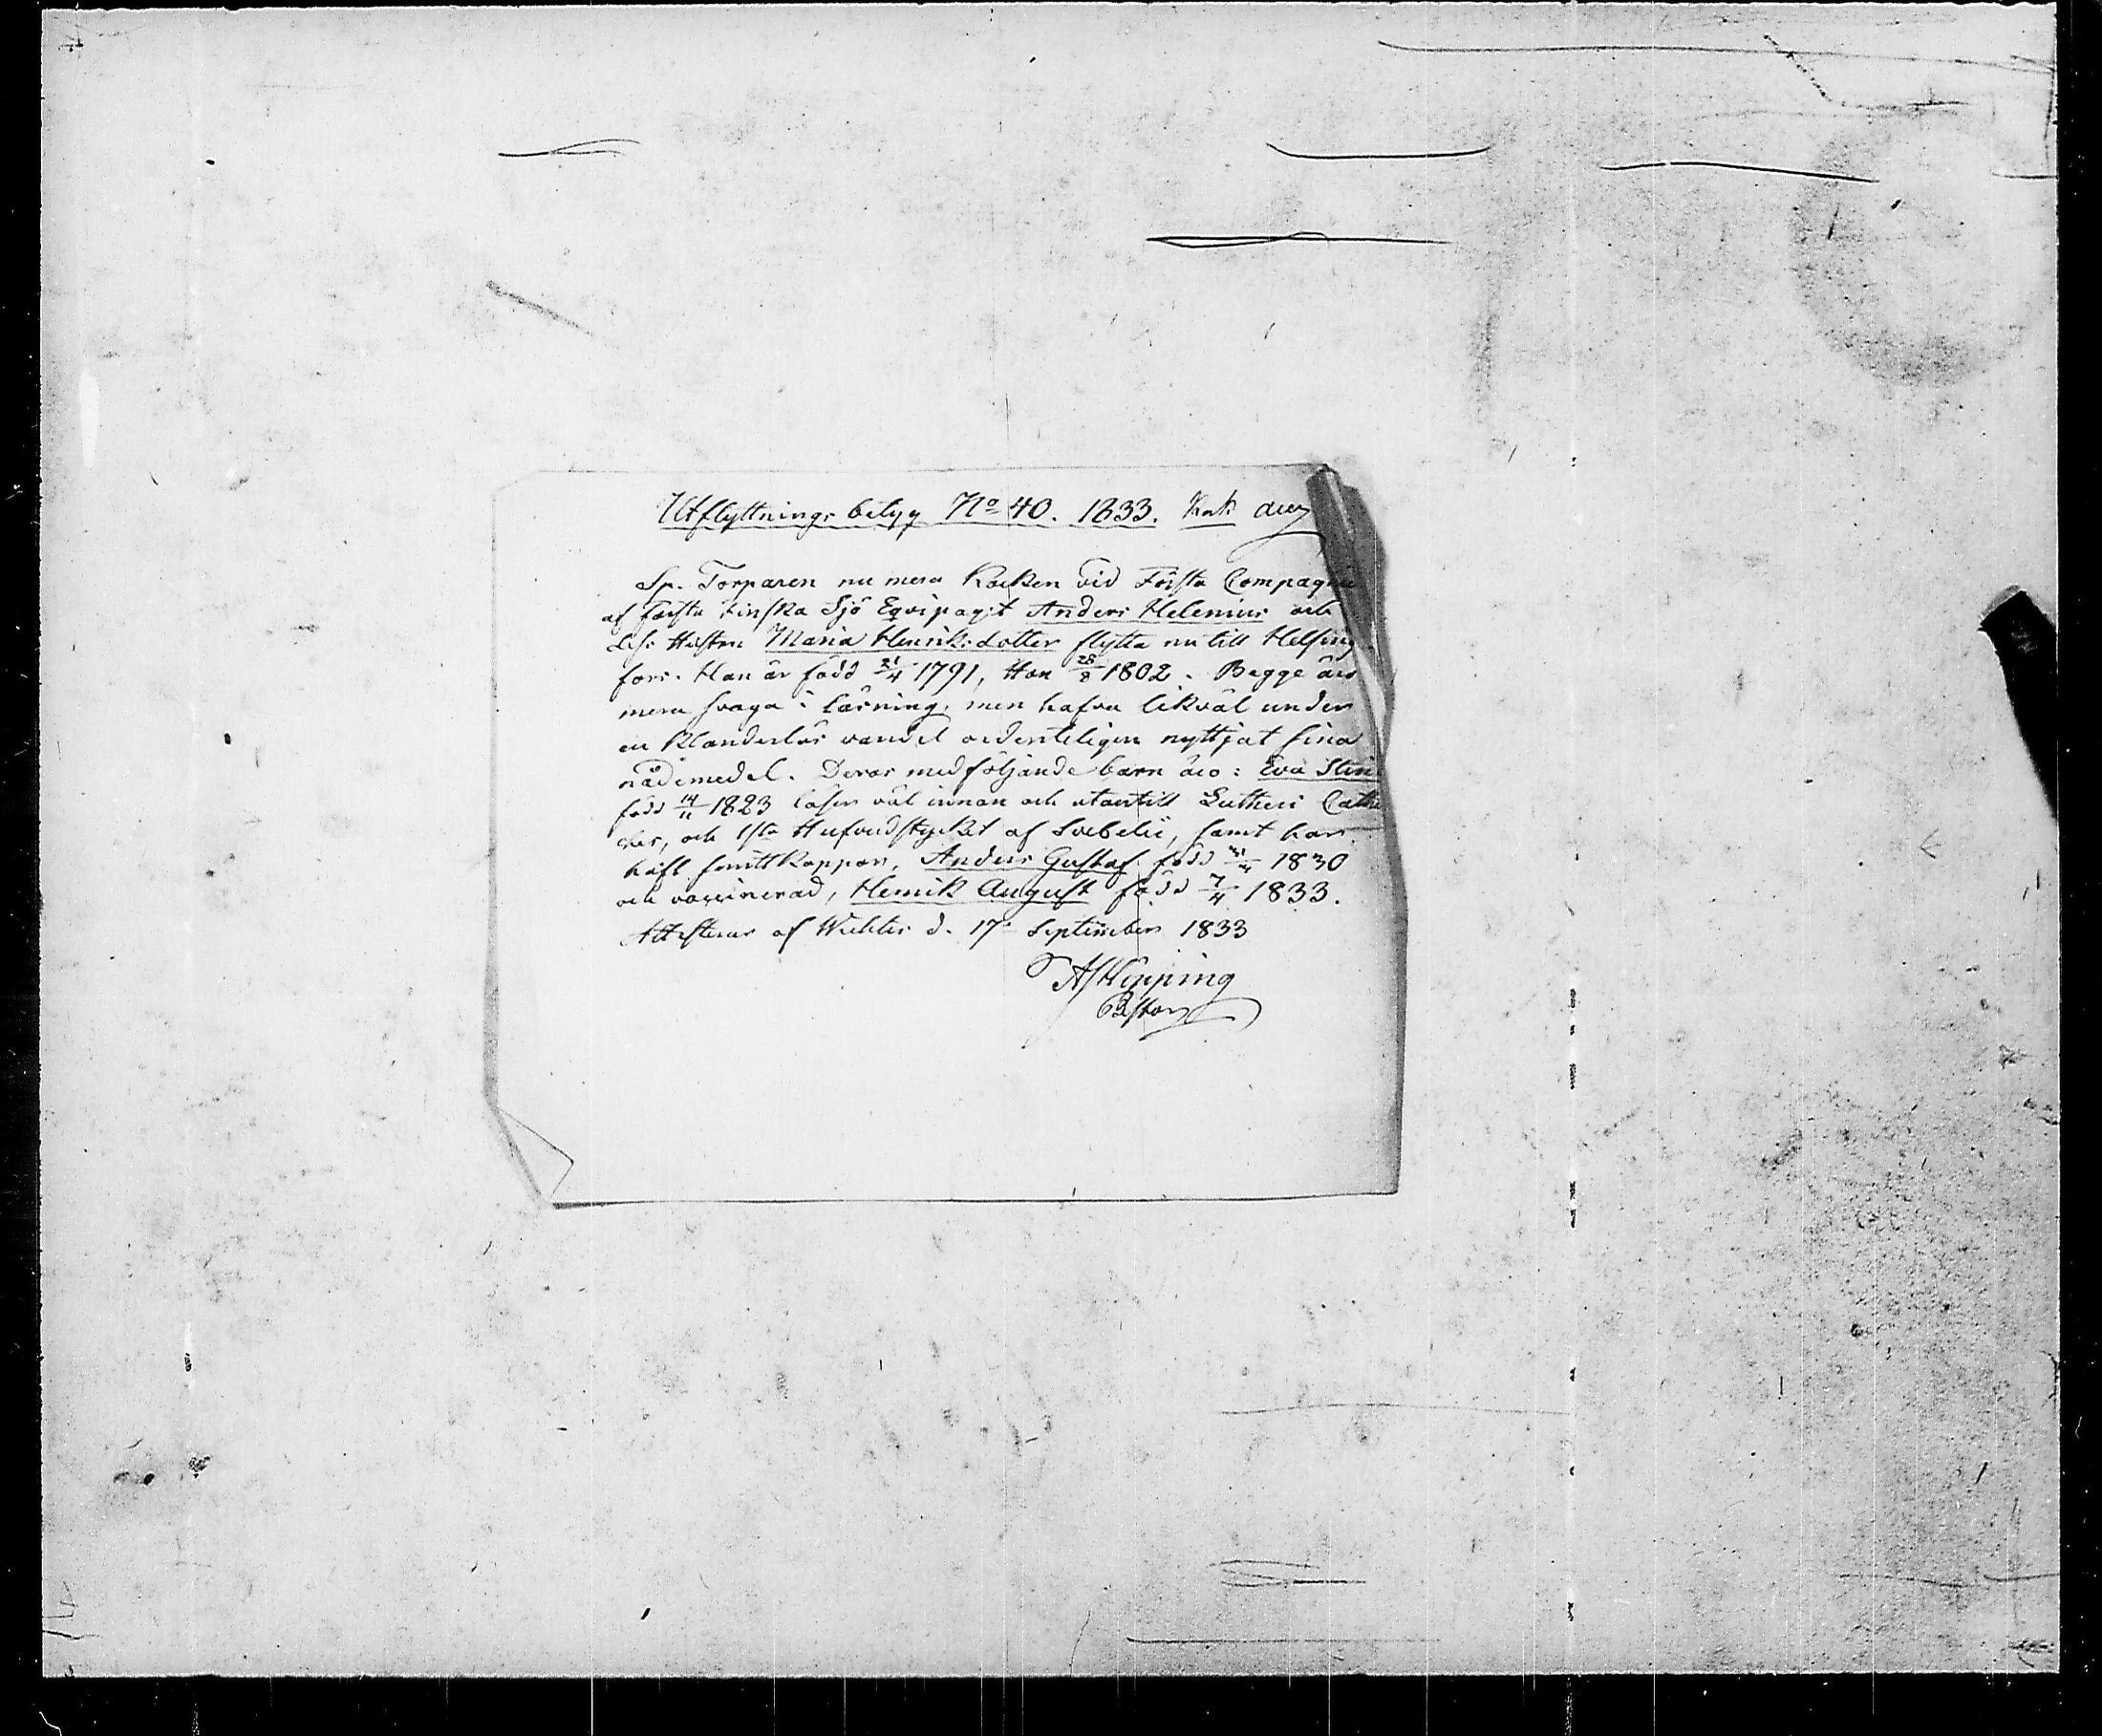 Utflyttnings betyg No 40. 1833.
Sp. Torparen nu mera Kocken vid Första Compagnie
af första Finska Sjö Equipaget Anders Helenius och
Dess Hustru Maria Henriksdotter flytta nu till Helsing
fors. Han är född 21/4 1791, Hon 28/8 1802. Begge äro
mera svaga i läsning, men hafva likväl under
en Klanderlös vandel ordenteligen nyttjat sina
nådemedel. Deras medföljande barn äro: Eva Stin
född 14/11 1823 läser väl innan och utantill Lutheri Cathe
ches, och 1sta Hufvudstycket af Svebelii, samt har
haft smittkoppor, Anders Gustaf född 1830
och vaccinerad, Henrik August född 7/4 1833.
Attesterar af Wichtis d. 17 September 1833
A J Hipping
Pastor